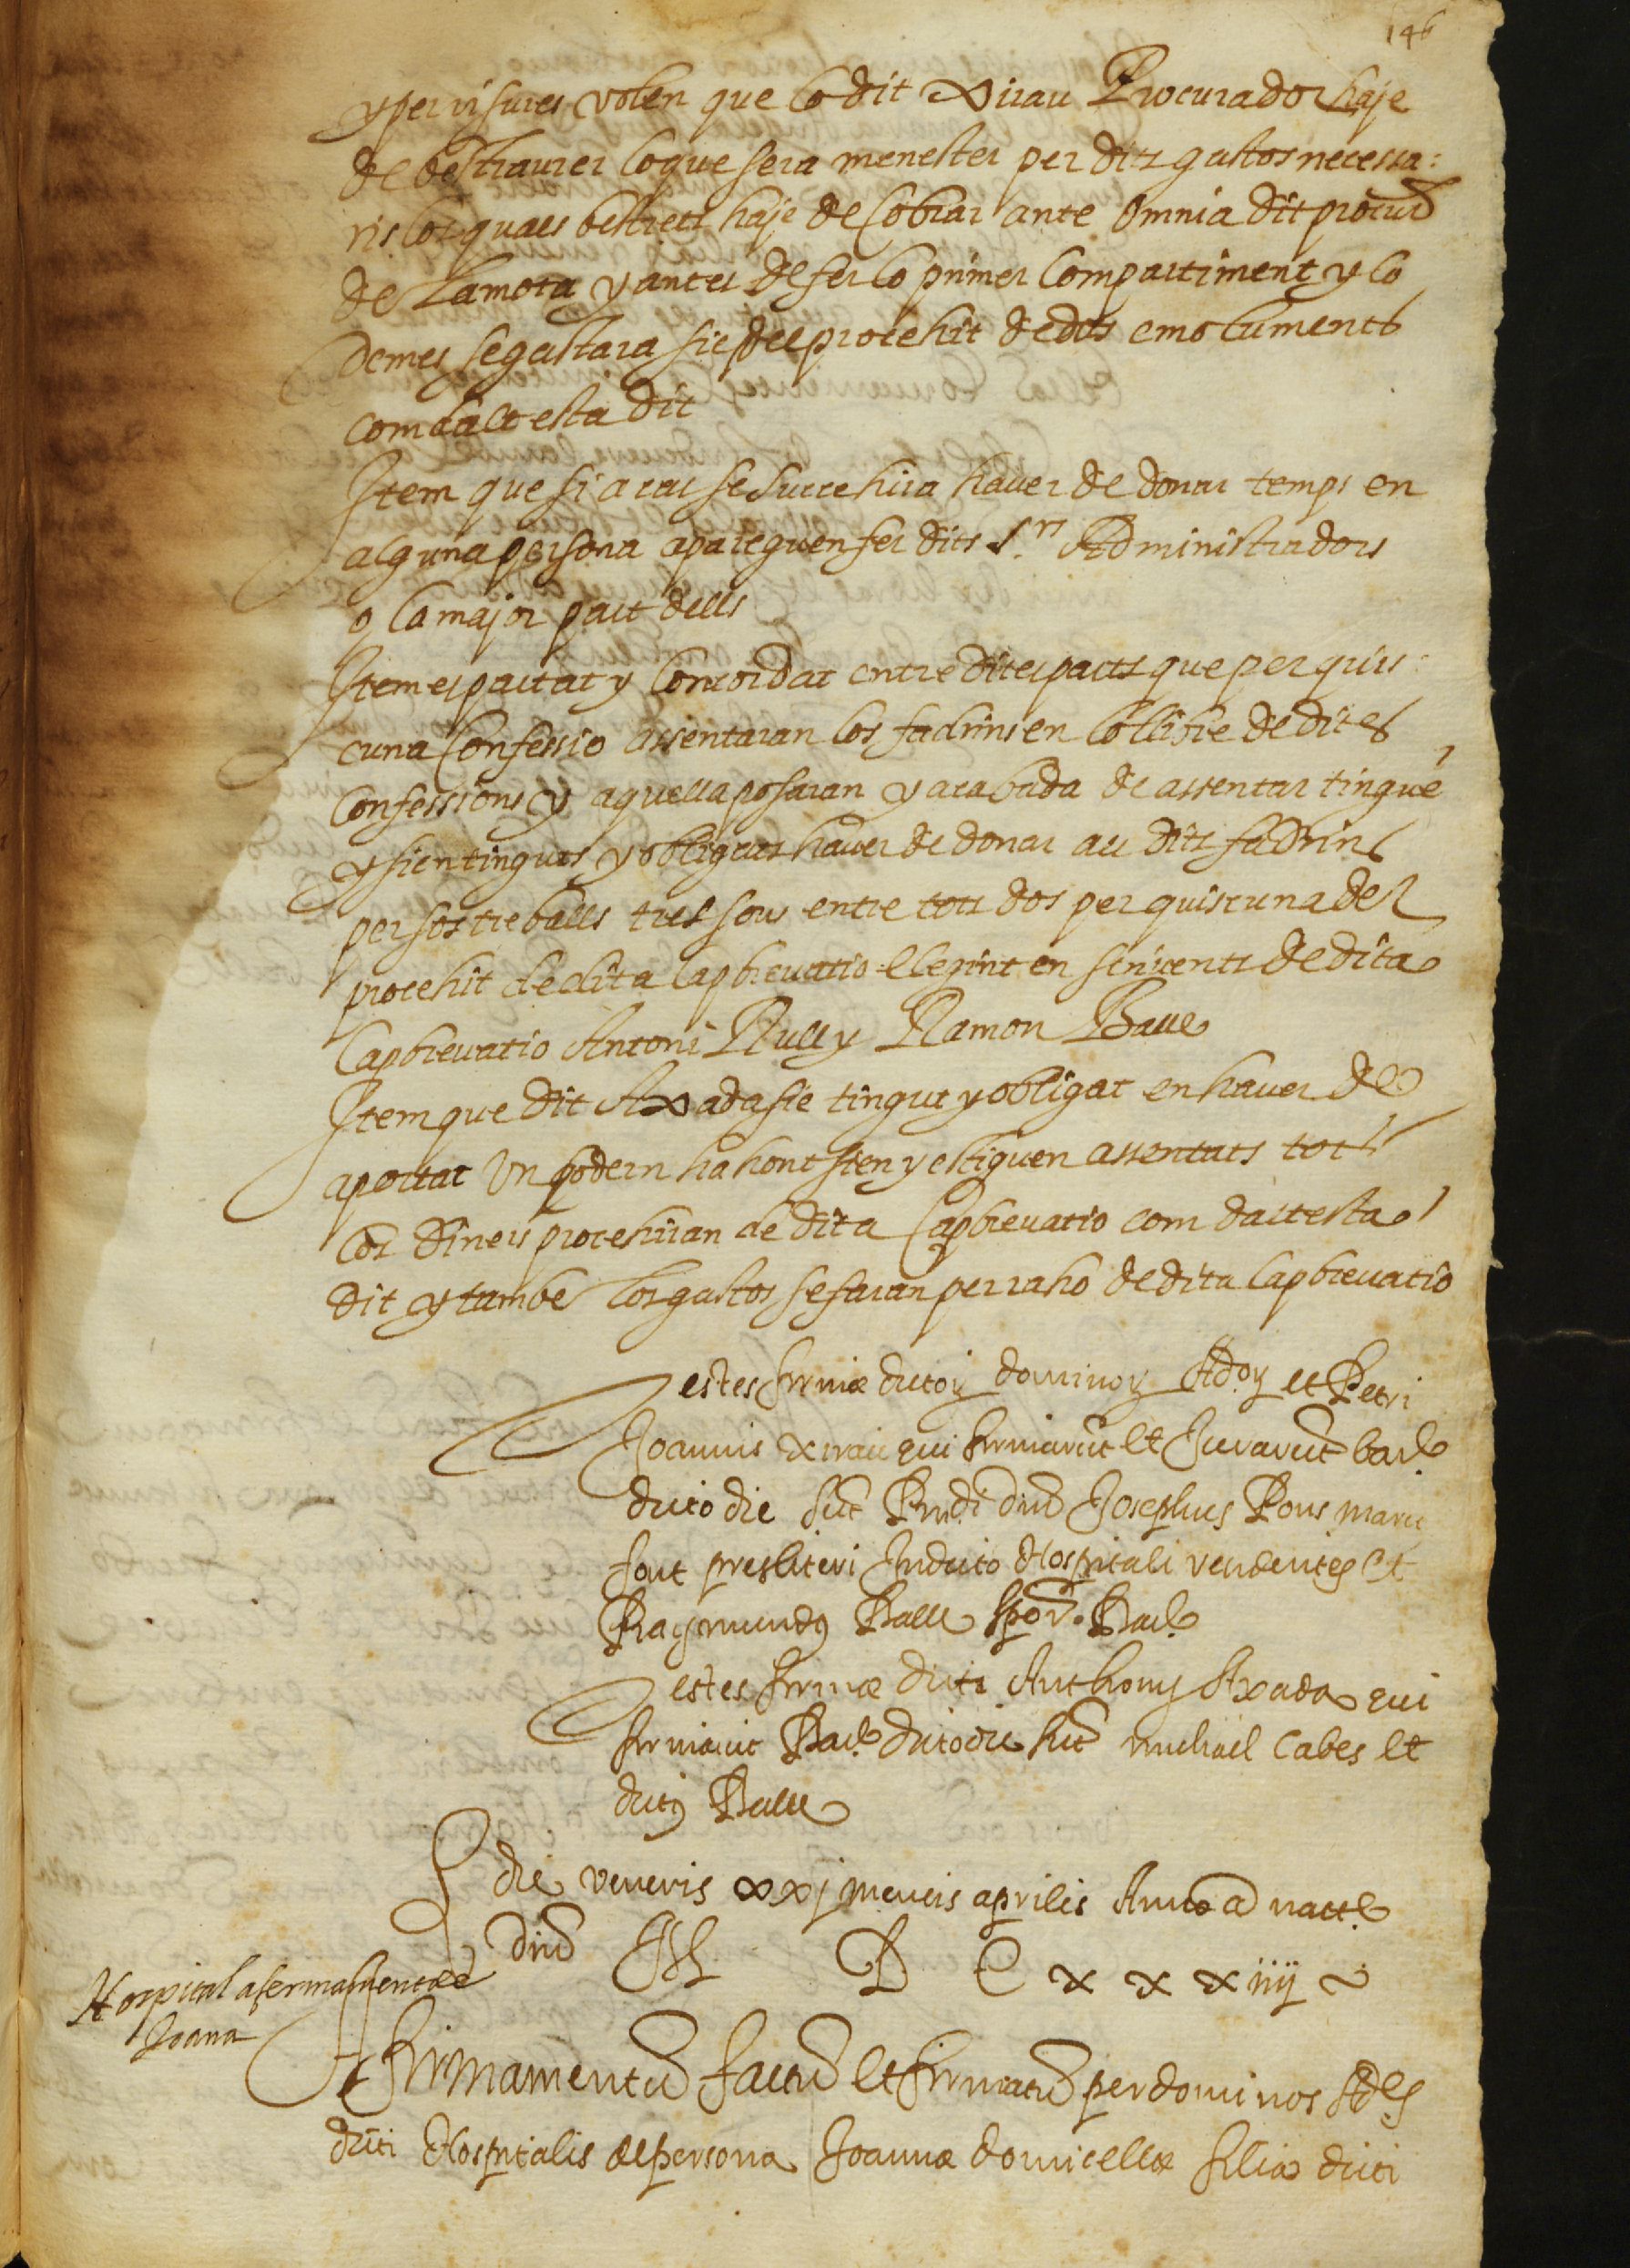 146
y per visures volen que lo dit Xirau Procurador haje
de bestraurer lo que sera menester per dits gastos necessa:
ris los quals bestrets haje de Cobrar ante omnia dit procur
de Lamota y antes de fer lo primer Compartiment y lo
demes se gastara sie del procehit de dits emoluments
com dalt esta dit
Item que si a cas se succehira haver de donar temps en
alguna persona apareguen fer dits S.rs Administradors
o la major part dells
Item es pactat y Concordat entre dites parts que per quis:
cuna Confessio assentaran los fadrins en lo llibre de dites
Confessions y aquella posaran y acabada de assentar tingue
y sien tinguts y obligats haver de donar als dits fadrins
per sos treballs tres sous entre tots dos per quiscuna del
procehit de dita Capbrevatio elegint en scrivents de dita
Capbrevatio Antoni Rull y Ramon Balle
Item que dit Axada sie tingut y obligat en haver de
aportar Un qodern ha hont sien y estiguen assentats tots
los diners procehiran de dita Capbrevatio com dalt esta
dit y tambe los gastos se faran per raho de dita Capbrevatio
Testes firmæ dictoꝝ dominoꝝ Ad.oꝝ et Petri
Joannis Xirau qui firmarūt et Jurarūt Bar.e
dicto die sūt Rndi dnī Josephus Pons marc
font presbiteri In dicto Hospitali residentes et
Raymundꝰ Balle Bar.e
Testes firmæ dicti Anthony Axada qui
firmavit Bar.e dicto die sūt michael Cabes et
dictꝰ Balle
die veneris xxj mensis aprilis Anno a natte
dnī M D C x x x iiij
Hospital afermament de
Joana
Afirmamentū factū et firmatū per dominos Ad.es
dicti Hospitalis de persona Joannæ domicellæ filiæ dicti